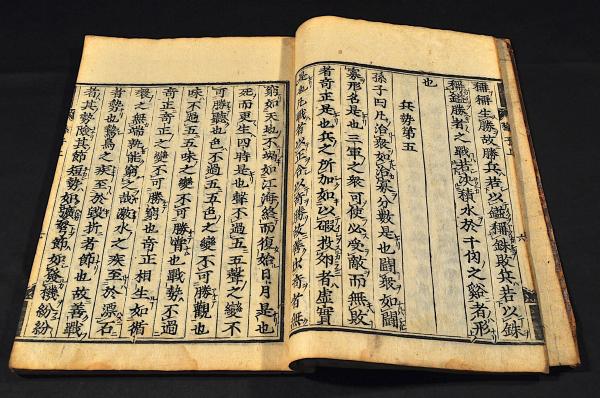 稱稱生勝故勝兵若以鎰稱銖敗兵若以銖
稱鎰勝者之戰若決積水於千仞之谿者形
也
兵勢第五
孫子曰凡治衆如治寡分數是也鬪衆如鬪
寡形名是也三軍之衆可使必受敵而無敗
者奇正是也兵之所加如以碬投卵者虚實
是也凡戰者以正合以奇勝故善出奇者無
窮如天地不竭如江海終而復始日月是也
死而更生四時是也聲不過五五聲之變不
可勝聽也色不過五五色之變不可勝觀也
味不過五五味之變不可勝嘗也戰勢不過
奇正奇正之變不可勝窮也奇正相生如循
環之無端孰能窮之哉激水之疾至於漂石
者勢也鷙鳥之疾至於毀折者節也故善戰
者其勢險其節短勢如彍弩節如發機紛紛